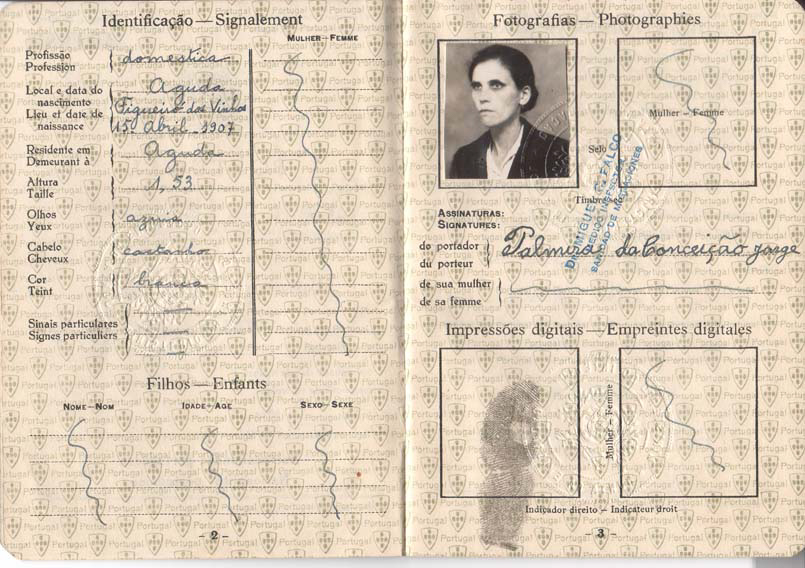 Identificação — Signalement
MULHER - FEMME
Profissão
Profession
domestica
Local e data do
nascimento
Lieu et date de
naissance
Aguda
Figueiró dos Vinhos
15 Abril - 1907
Residente em
Demeurant à
Aguda
Altura
Taille
1,53
Olhos
Yeux
Cabelo
Cheveux
castanho
Cor
Teint
branca
Sinais particulares
Signes particuliers
Filhos — Enfants
NOME - NOM IDADE - AGE SEXO - SEXE
- 2 -
Fotografias — Photographies
Mulher - Femme
Selo
Timbre
DR. MIGUEL C. FALCO
MEDICO INSPECTOR
SANIDAD DE
ASSINATURAS:
SIGNATURES:
do portador
du porteur
Palmira da Conceição Jorge
de sua mulher
de sa femme
Impressões digitais — Empreintes digitales
Mulher - Femme
Indicador direito - Indicateur droit
- 3 -